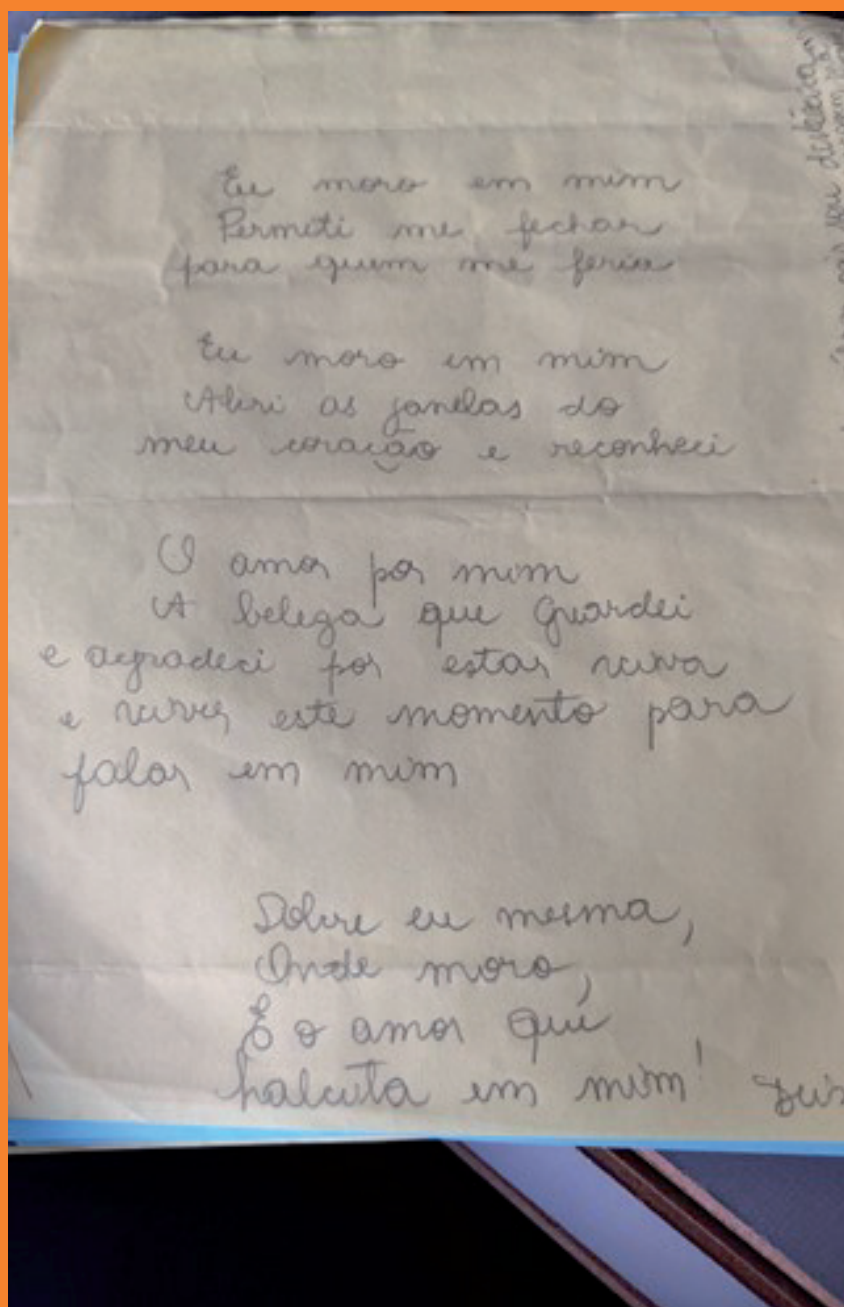 Eu moro em mim
Permiti me fechar
para quem me feria
Eu moro em mim
Abri as janelas do
meu coração e reconheci
O amor por mim
A beleza que guardei
e agradeci por estar viva
e viver este momento para
falar em mim
Sobre eu mesma,
Onde moro,
É o amor que
habita em mim!